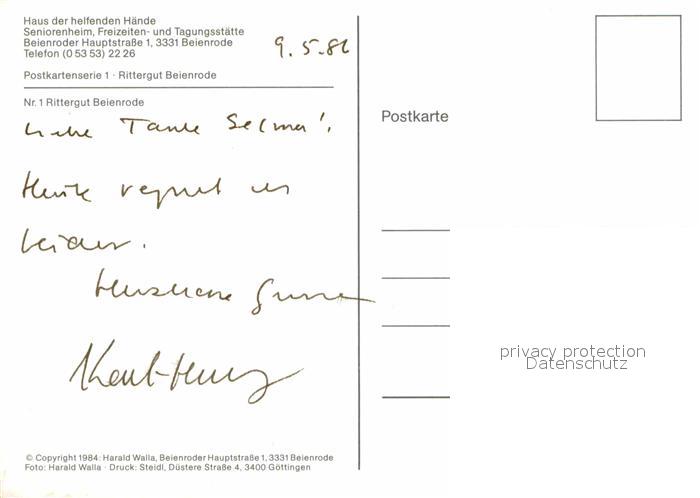 Haus der helfenden Hände
Seniorenheim, Freizeiten- und Tagungsstätte
Beienroder Hauptstraße 1, 3331 Beienrode
Telefon (0 53 53) 22 26
9.5.86
Postkartenserie 1 · Rittergut Beienrode
Nr. 1 Rittergut Beienrode
Liebe Tante Selma!
Heute regnet es
leider.
Herzliche Grüsse
Karl-Heinz
Postkarte
privacy protection
Datenschutz
© Copyright 1984: Harald Walla, Beienroder Hauptstraße 1, 3331 Beienrode
Foto: Harald Walla · Druck: Steidl, Düstere Straße 4, 3400 Göttingen